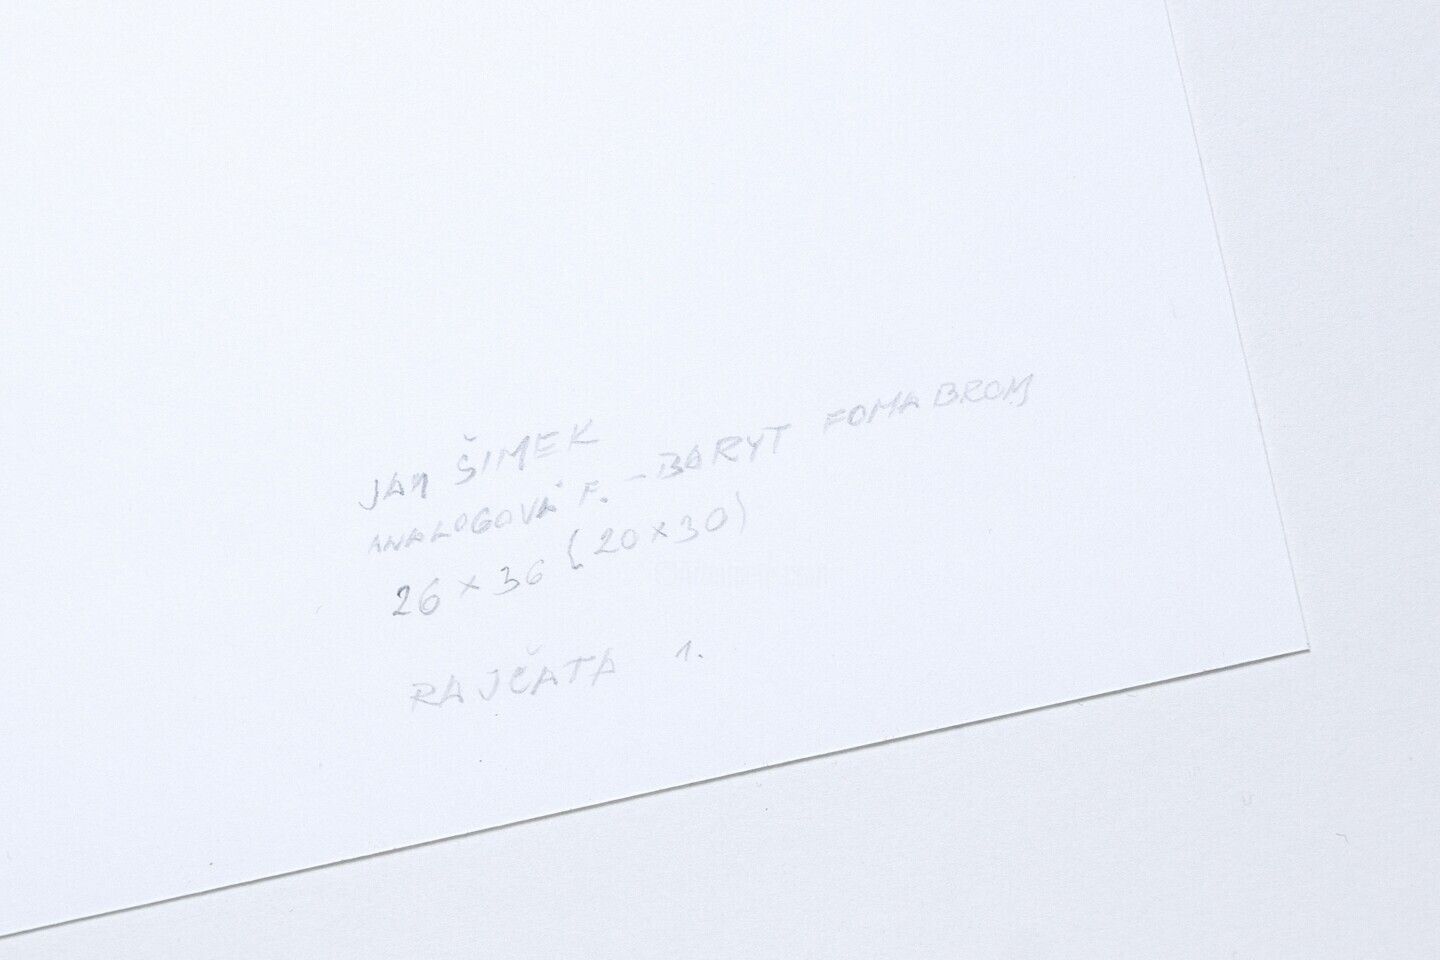 JAN ŠIMEK
ANALOGOVÁ F. – BARYT FOMABROM
26 × 36 (20 × 30)
RAJČATA 1.